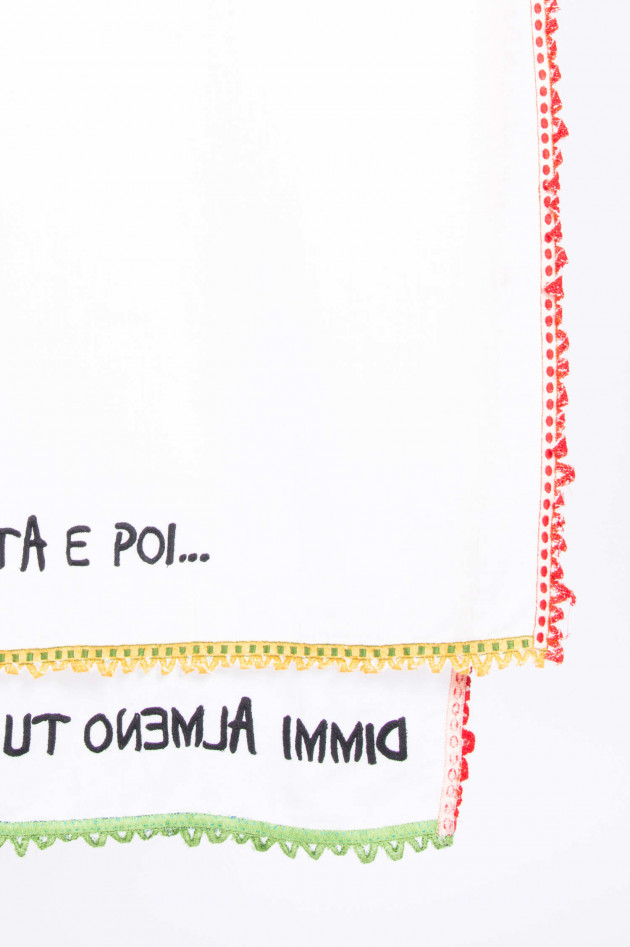 TA E POI...
DIMMI ALMENO TU